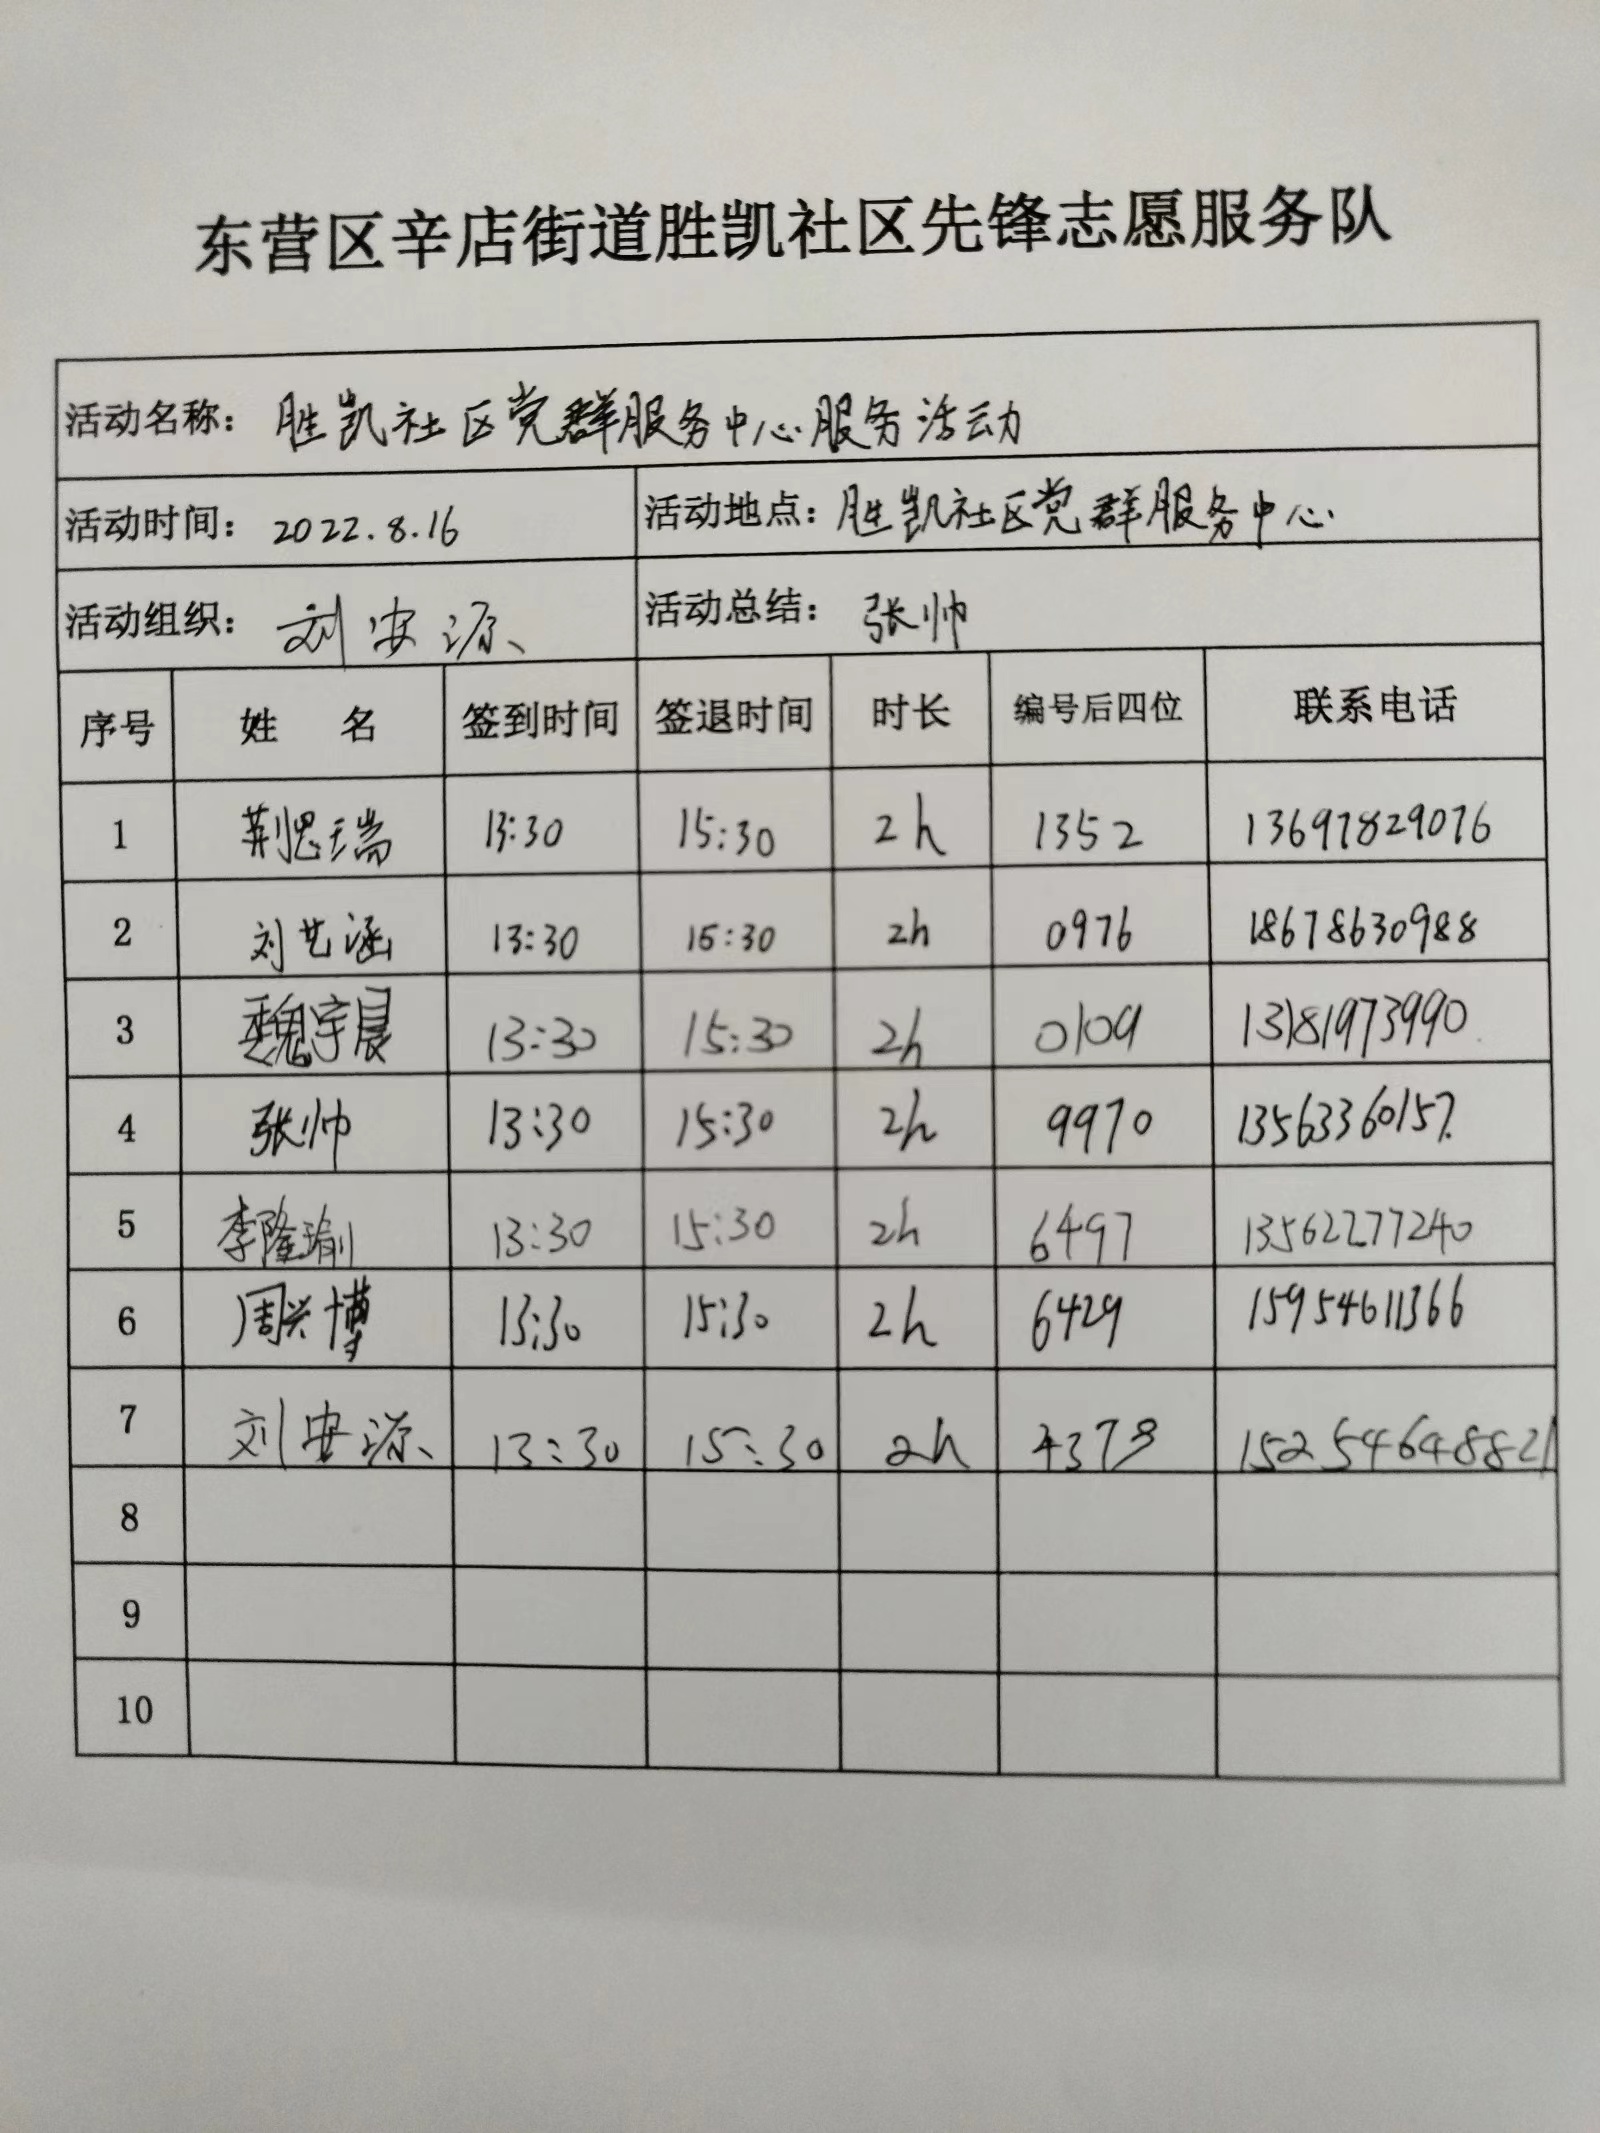 东营区辛店街道胜凯社区先锋志愿服务队
活动名称：胜凯社区党群服务中心服务活动
活动时间：2022.8.16 活动地点：胜凯社区党群服务中心
活动组织：刘安源 活动总结：张帅
序号 姓 名 签到时间 签退时间 时长 编号后四位 联系电话
1 荆思瑞 13:30 15:30 2h 1352 13697829076
2 刘艺涵 13:30 15:30 2h 0976 18678630988
3 魏宇晨 13:30 15:30 2h 0109 13181973990
4 张帅 13:30 15:30 2h 9970 13563360157
5 李隆瑜 13:30 15:30 2h 6497 13562277240
6 周兴博 13:30 15:30 2h 6429 15954611366
7 刘安源 13:30 15:30 2h 15254648821
8
9
10